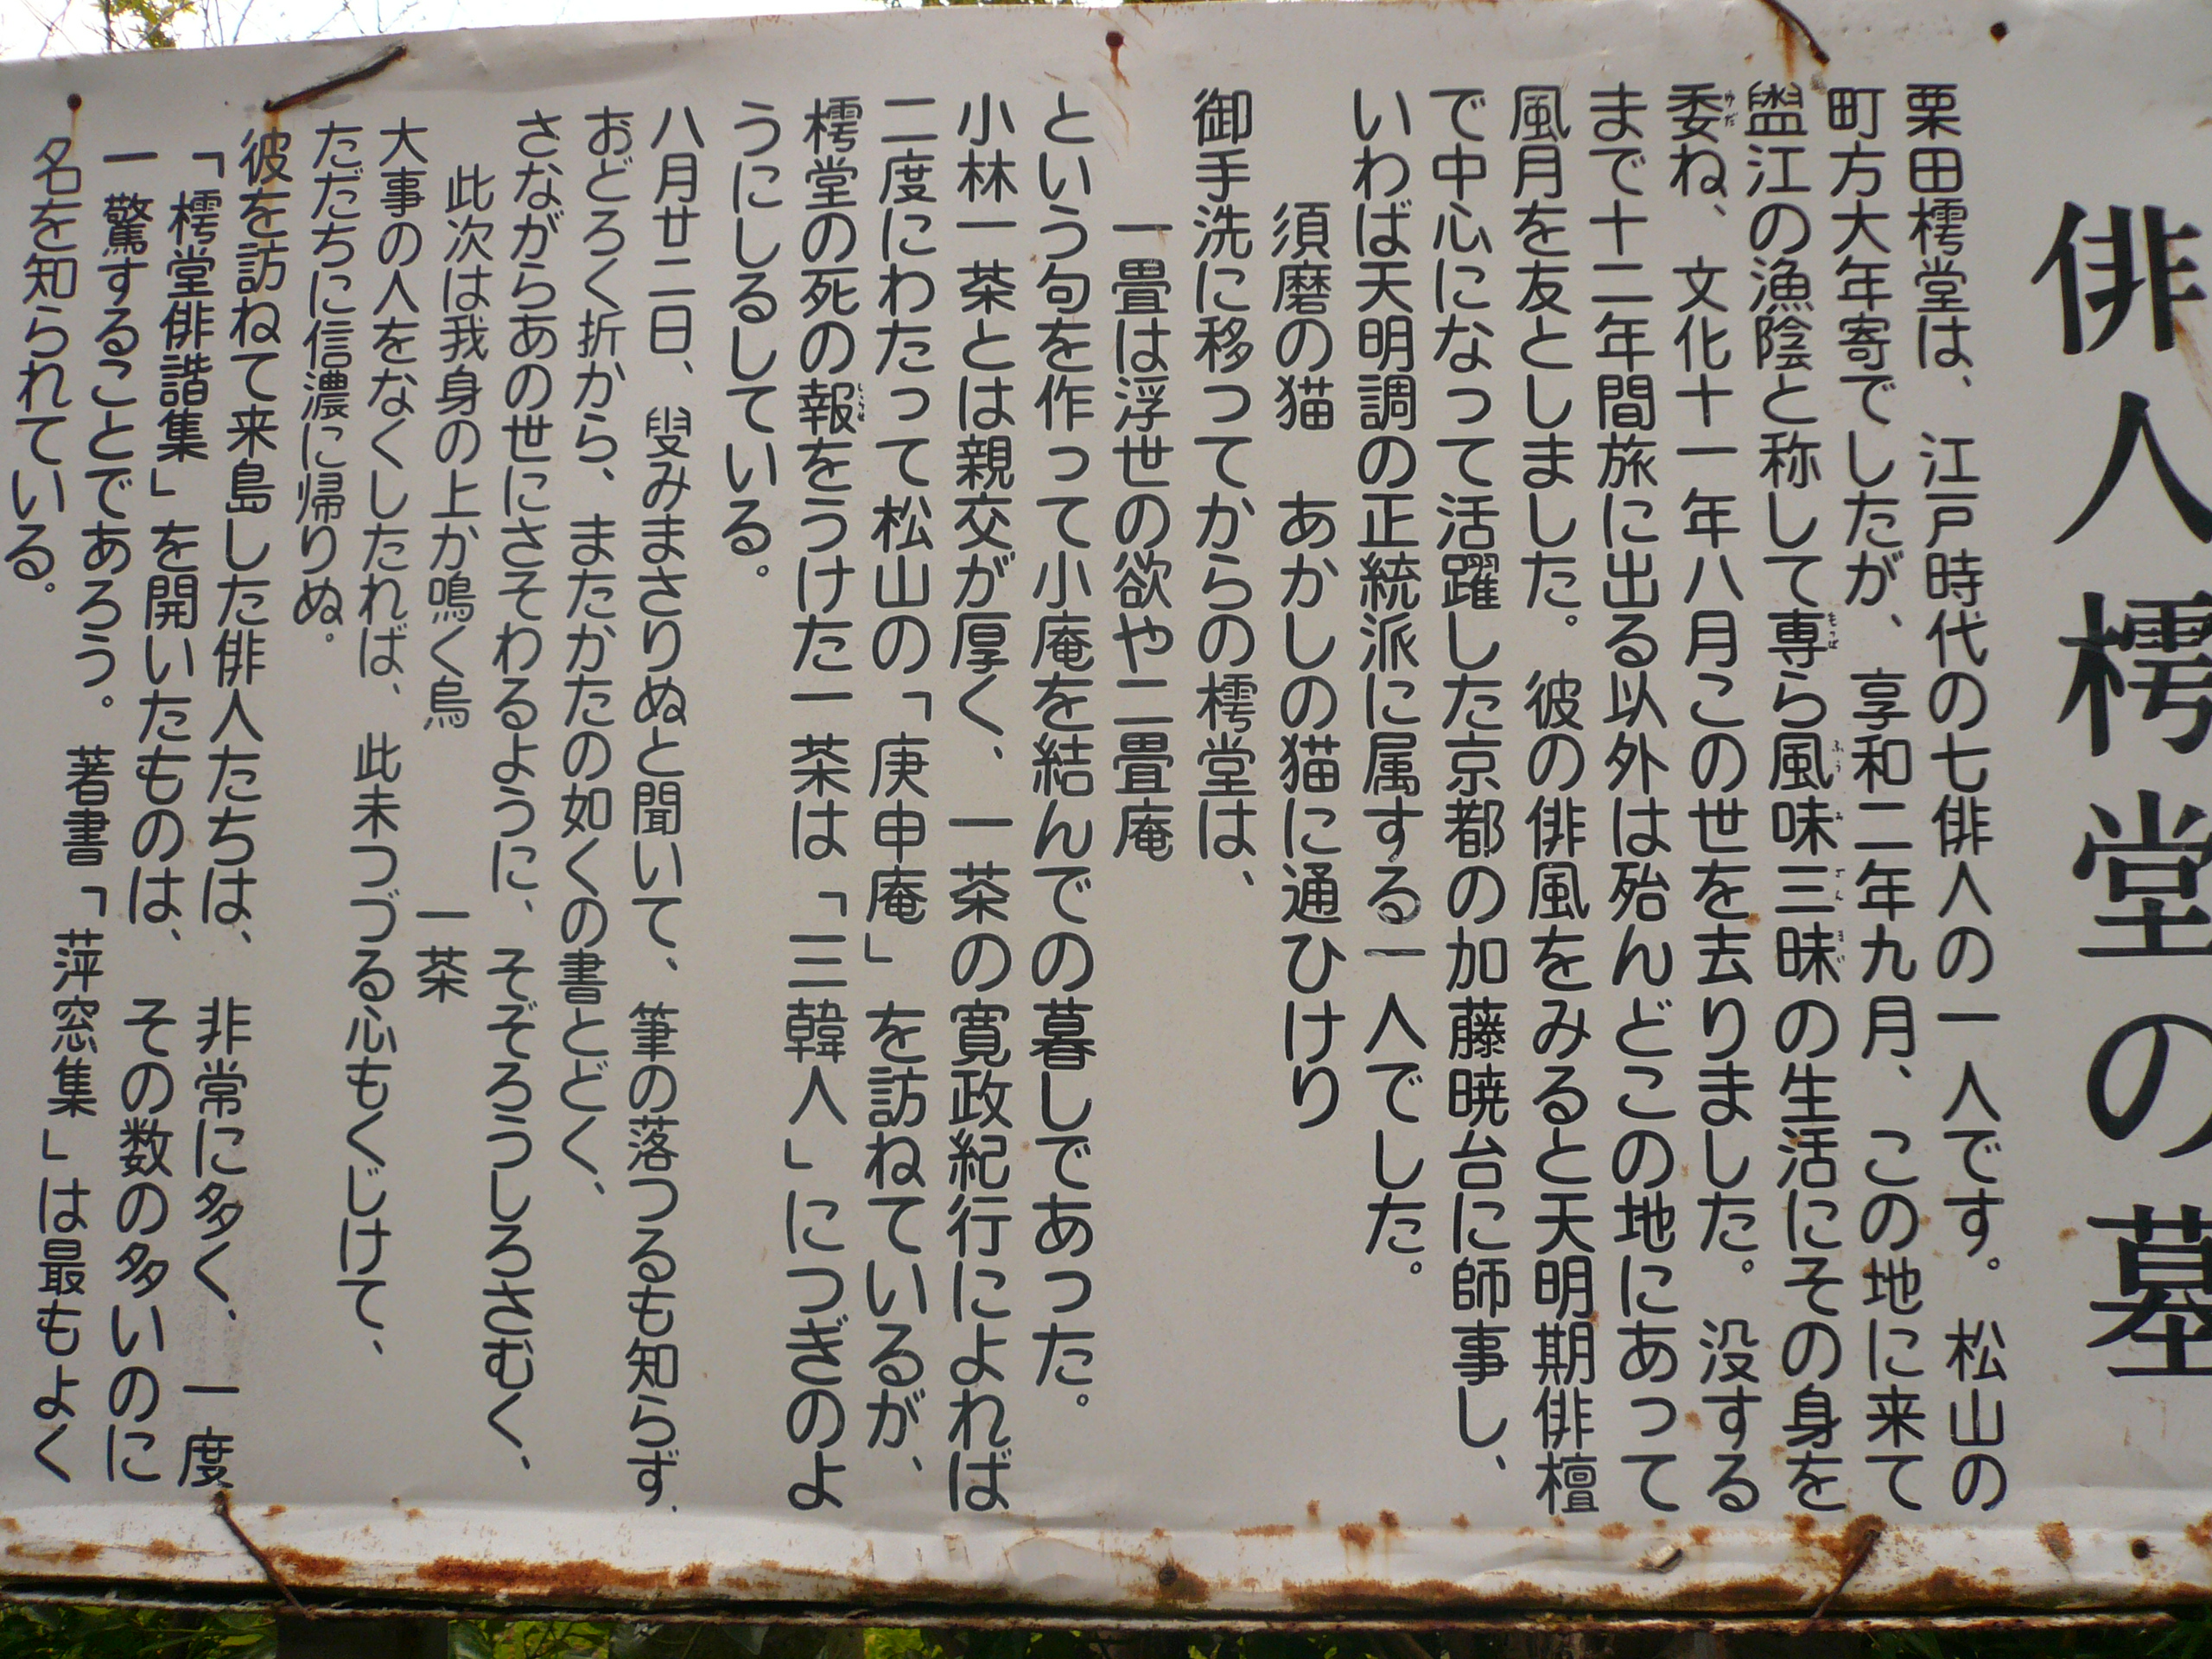 俳人樗堂の墓
栗田樗堂は、江戸時代の七俳人の一人です。松山の
町方大年寄でしたが、享和二年九月、この地に来て
盥江の漁陰と称して専ら風味三昧の生活にその身を
委ね、文化十一年八月この世を去りました。没する
まで十二年間旅に出る以外は殆んどこの地にあって
風月を友としました。彼の俳風をみると天明期俳檀
で中心になって活躍した京都の加藤暁台に師事し、
いわば天明調の正統派に属する一人でした。
須磨の猫　あかしの猫に通ひけり
御手洗に移ってからの樗堂は、
一畳は浮世の欲や二畳庵
という句を作って小庵を結んでの暮しであった。
小林一茶とは親交が厚く、一茶の寛政紀行によれば
二度にわたって松山の「庚申庵」を訪ねているが、
樗堂の死の報をうけた一茶は「三韓人」につぎのよ
うにしるしている。
八月廿二日、叟みまさりぬと聞いて、筆の落つるも知らず、
おどろく折から、またかたの如くの書とどく、
さながらあの世にさそわるように、そぞろうしろさむく、
此次は我身の上か鳴く烏　一茶
大事の人をなくしたれば、此未つづる心もくじけて、
ただちに信濃に帰りぬ。
彼を訪ねて来島した俳人たちは、非常に多く、一度
「樗堂俳諧集」を開いたものは、その数の多いのに
一驚することであろう。著書「萍窓集」は最もよく
名を知られている。